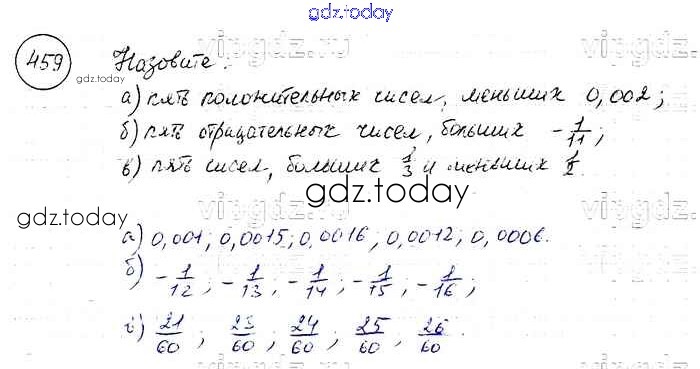 gdz.today
vipgdz.ru
459 Назовите:
gdz.today
а) пять положительных чисел, меньших 0,002;
б) пять отрицательных чисел, больших -1/11;
в) пять чисел, больших 1/3 и меньших 1/2.
gdz.today
gdz.today
vipgdz.ru
а) 0,001; 0,0015; 0,0016, 0,0012; 0,0006.
б) -1/12; -1/13; -1/14; -1/15; -1/16;
в) 21/60; 23/60; 24/60; 25/60, 26/60.